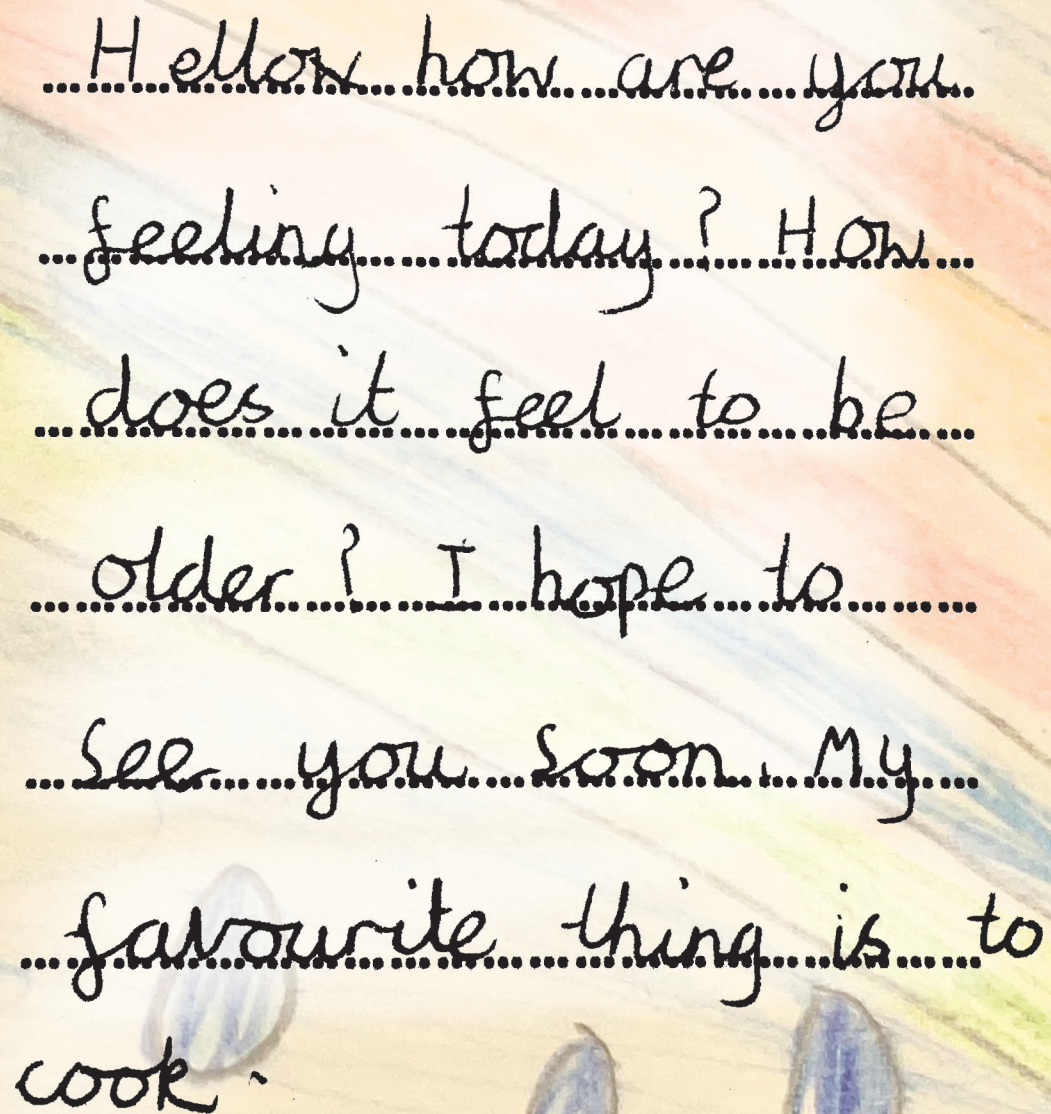 Hellow how are you
feeling today? How
does it feel to be
older? I hope to
See you Soon. My
favourite thing is to
cook.